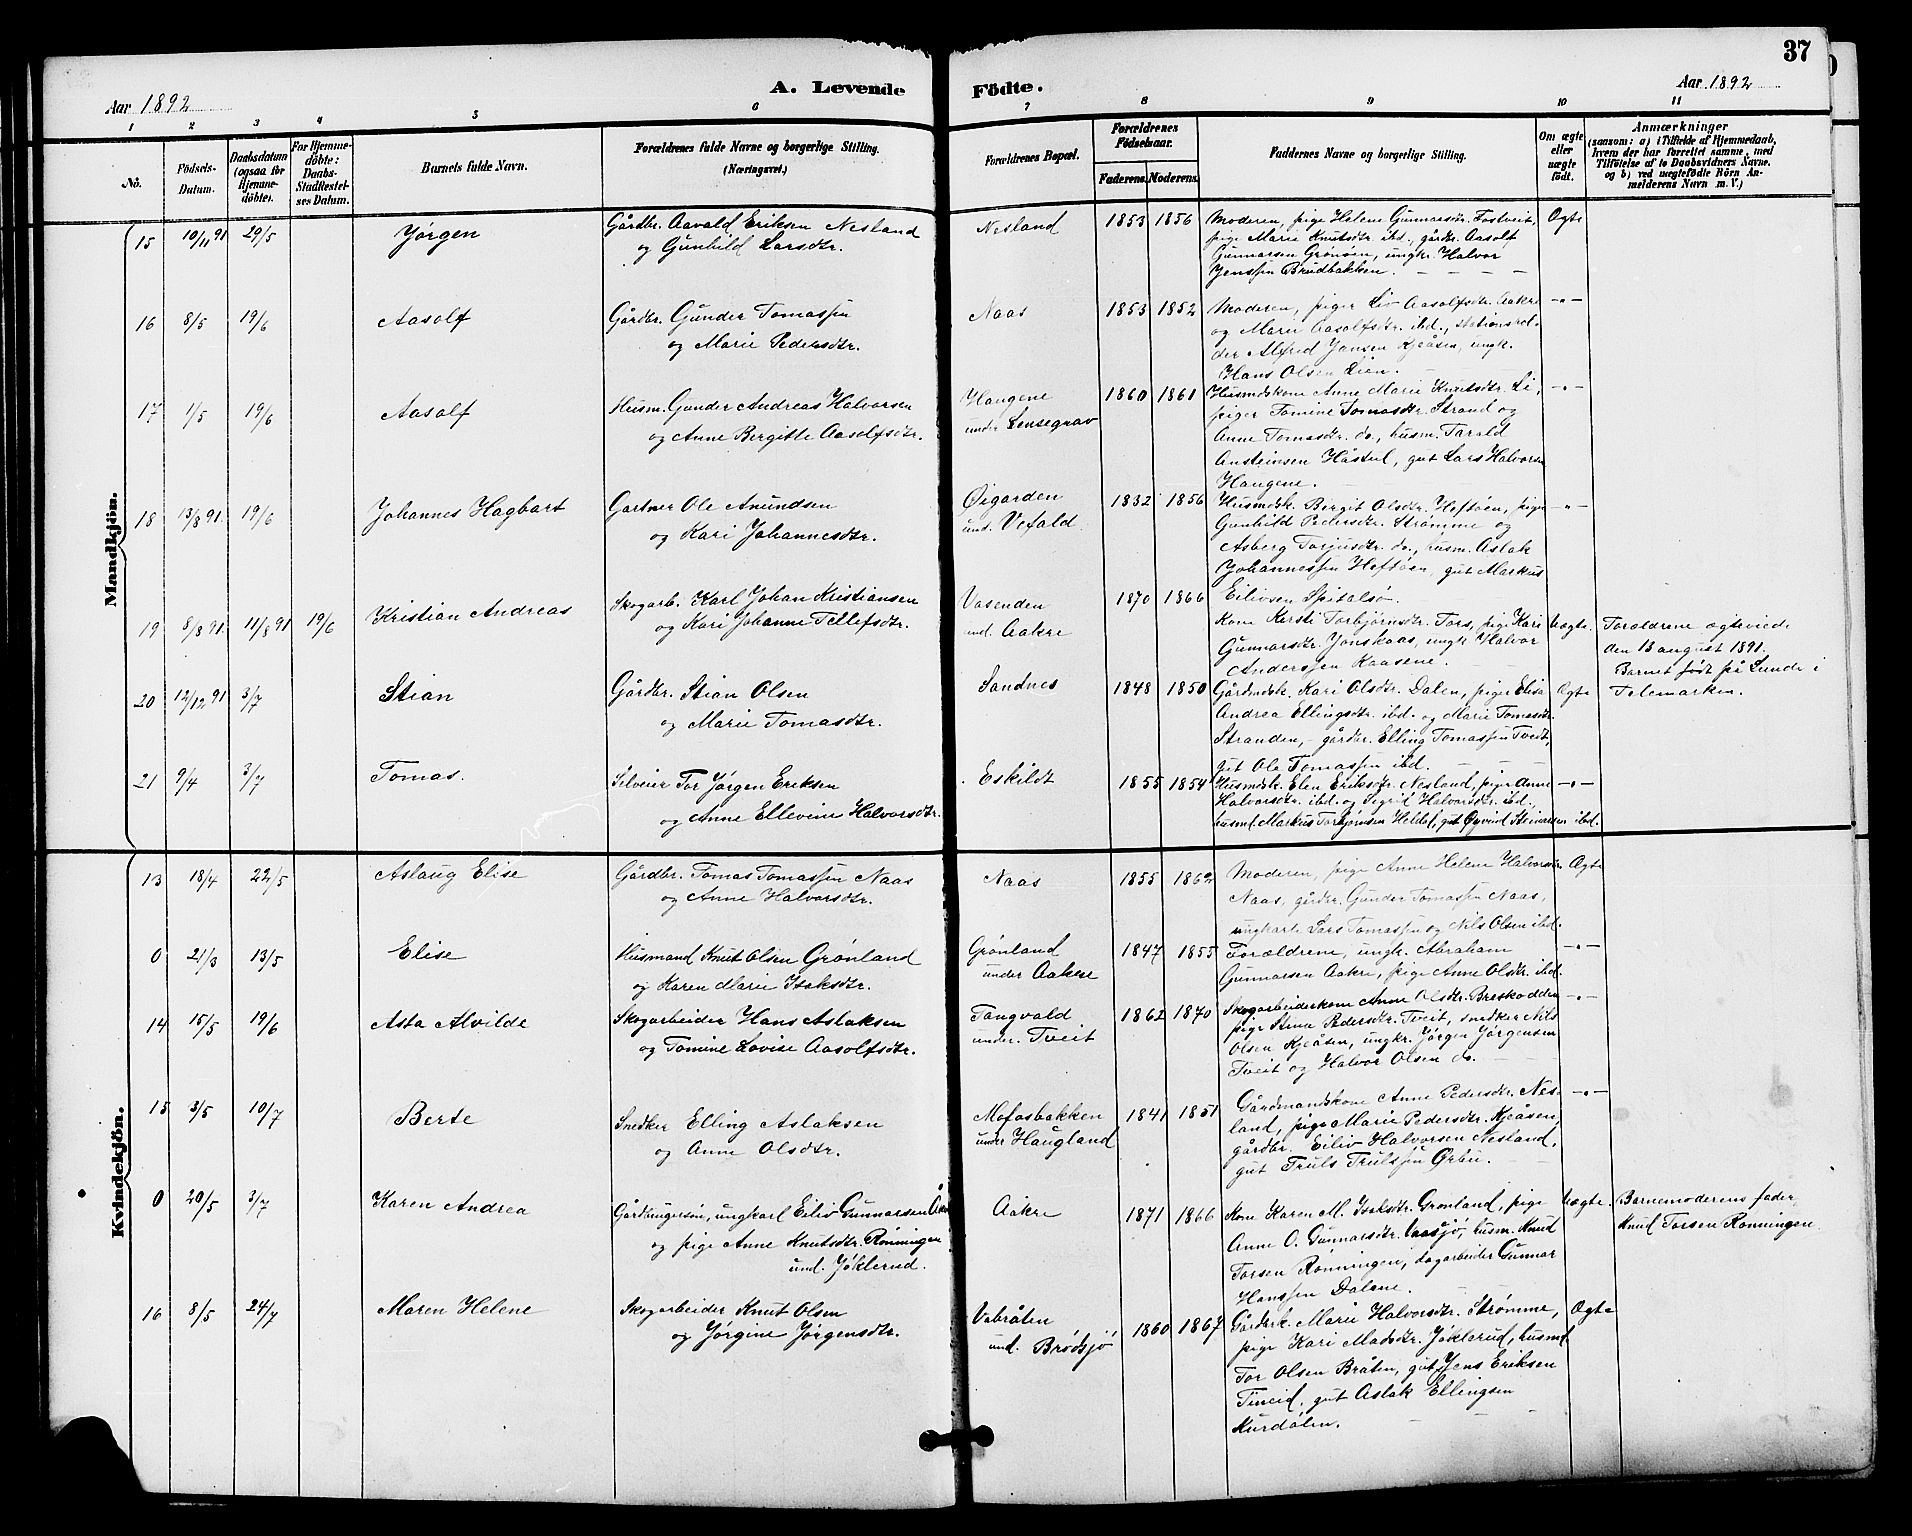 37
Aar 1892
A. Levende
Fødte.
Aar 1892
1 2 3 4 5 6 7 8 9 10 11
No.
Födsels-Datum.
Daabsdatum (ogsaa for Hjemmedöbte).
For Hjemmedöbte: Daabs-Stadfestelses Datum.
Barnets fulde Navn.
Forældrenes fulde Navne og borgerlige Stilling. (Næringsvei.)
Forældrenes Bopæl.
Forældrenes Födselsaar.
Faderens. Moderens.
Faddernes Navne og borgerlige Stilling.
Om ægte eller uægte födt.
Anmærkninger
(saasom: a) i Tilfælde af Hjemmedaab, hvem der har forrettet samme, med Tilföielse af to Daabsvidners Navne, og b) ved uægtefödte Börn Anmelderens Navn m. V.)
Mandkjön.
15 10/11 91 29/5 Jørgen
Gårdbr. Aavald Eriksen Nesland
og Gunhild Larsdtr.
Nesland 1853 1856
Moderen, pige Helene Gunnarsdtr. Fostveit,
pige Marie Knutsdtr. ibd., gårdbr. Aasolf
Gunnarsen Grønøen, ungkr. Halvor
Jenssen Brudbakken.
Ægte
16 8/5 19/6 Aasolf
Gårdbr. Gunder Tomassen
og Marie Pedersdtr.
Naas 1853 1852
Moderen, piger Liv Aasolfsdtr. Aakre
og Marie Aasolfsdtr. ibd., stationshol-
der Alfred Jansen Kjeåsen, ungk.
Hans Olsen Lien.
-"-
17 1/5 19/6 Aasolf
Husm. Gunder Andreas Halvorsen
og Anne Bergitte Aasolfsdtr.
Haugene
under Lensegrav
1860 1861
Husmdskone Anne Marie Knutsdtr. Li,
piger Tomine Tomasdtr. Strand og
Anne Tomasdtr. do., husm. Tarald
Ansteinsen Håstul, gut Lars Halvorsen
Haugene.
-"-
18 13/8 91. 19/6 Johannes Hagbart
Gartner Ole Amundsen
og Kari Johannesdtr.
Øigarden
und. Vefald.
1832 1856
Husmdsk. Bergit Olsdtr. Heftøen, pige
Gunhild Pedersdtr. Strømme og
Asberg Torjusdtr. do., husm. Aslak
Johannessen Heftøen, gut Markus
Eilivsen Spitalsø.
-"-
19 8/8 91. 11/8 91 19/6 Kristian Andreas
Skogarb. Karl Johan Kristiansen
og Kari Johanne Tellefsdtr.
Vasenden
und. Aakre
1870 1866
Kone Kersti Torbjørnsdtr. Fors, pige Kari
Gunnarsdtr. Jonskaas, ungk Halvor
Anderssen Kaasene.
Uægte.
Foreldrene ægteviede
den 13 august 1891.
Barnet født på Lunde i
Telemarken.
20 12/12 91 3/7 Stian
Gårdbr. Stian Olsen
og Marie Tomasdtr.
Sandnes 1848 1850
Gårdmdsk. Kari Olsdtr. Dalen, piger Elisa
Andrea Ellingsdtr. ibd. og Marie Tomasdtr.
Stranden, - gårdbr. Elling Tomassen Tveit,
gut Ole Tomassen ibd.
Ægte
21 9/4 3/7 Tomas.
Selveier Tor Jørgen Eriksen
og Anne Ellevine Halvorsdtr.
Eskildt 1855 1854
Husmdsk. Elen Eriksdtr. Nesland, piger Anne
Halvorsdtr. ibd. og Sigrid Halvorsdtr. ibd.,
husmd. Markus Torbjørnsen Heldøl, gut Øyvind Steinarsen ibd.
-"-
Kvindekjön.
13 18/4 22/5 Aslaug Elise
Gårdbr. Tomas Tomassen Naas
og Anne Halvorsdtr.
Naas 1855 1862
Moderen, pige Anne Helene Halvorsdtr.
Naas, gårdbr. Gunder Tomassen Naas,
ungkarle Lars Tomassen og Nils Olsen ibd.
Ægte
0 21/3 13/5 Elise
Husmand Knut Olsen Grønland
og Karen Marie Isaksdtr.
Grønland
under Aakre
1847 1855
Forældrene, ungk. Abraham
Gunnarsen Aakre, pige Anne Olsdtr. ibd.
-"-
14 15/5 19/6 Asta Alvilde
Skogarbeider Hans Aslaksen
og Tomine Lovise Aasolfsdtr.
Tangvald
under. Tveit
1862 1870
Skogarbeiderkone Anne Olsdtr. Breskodden
pige Stine Pedersdtr. Tveit, snedker Nils
Olsen Kjeåsen, ungkr. Jørgen Jørgensen
Tveit og Halvor Olsen do.
-"-
15 3/5 10/7 Berte
Snedker Elling Aslaksen
og Anne Olsdtr.
Mofosbakken
under Haugland
1841 1851
Gårdmandskone Anne Pedersdtr. Nes-
land, pige Marie Pedersdtr. Kjeåsen,
gårdbr. Eiliv Halvorsen Nesland,
gut Truls Trulssen Ørbu.
-"-
0 20/5 3/7 Karen Andrea
Gårdbrugersøn, ungkarl Eiliv Gunnarsen
og pige Anne Knutsdtr. Rønningen
und. Jøklerud.
Aakre 1871 1866
Kone Karen M. Isaksdtr. Grønland, pige
Anne O. Gunnarsdtr. Vaasjø, husm. Knud
Torsen Rønningen, dagarbeider Gunnar
Hanssen Dalene.
Uægte.
Barnemoderens fader
Knud Torsen Rønningen
16 8/5 24/7 Maren Helene
Skogarbeider Knut Olsen
og Jørgine Jørgensdtr.
Vabråten
und. Brødsjø
1860 1867
Gårdbrk. Marie Halvorsdtr. Strømme,
pige Kari Madsdtr. Jøklerud, husmd.
Tor Olsen Bråten, gut Jens Eriksen
Tineid, gut Aslak Ellingsen
Murdalen.
Ægte